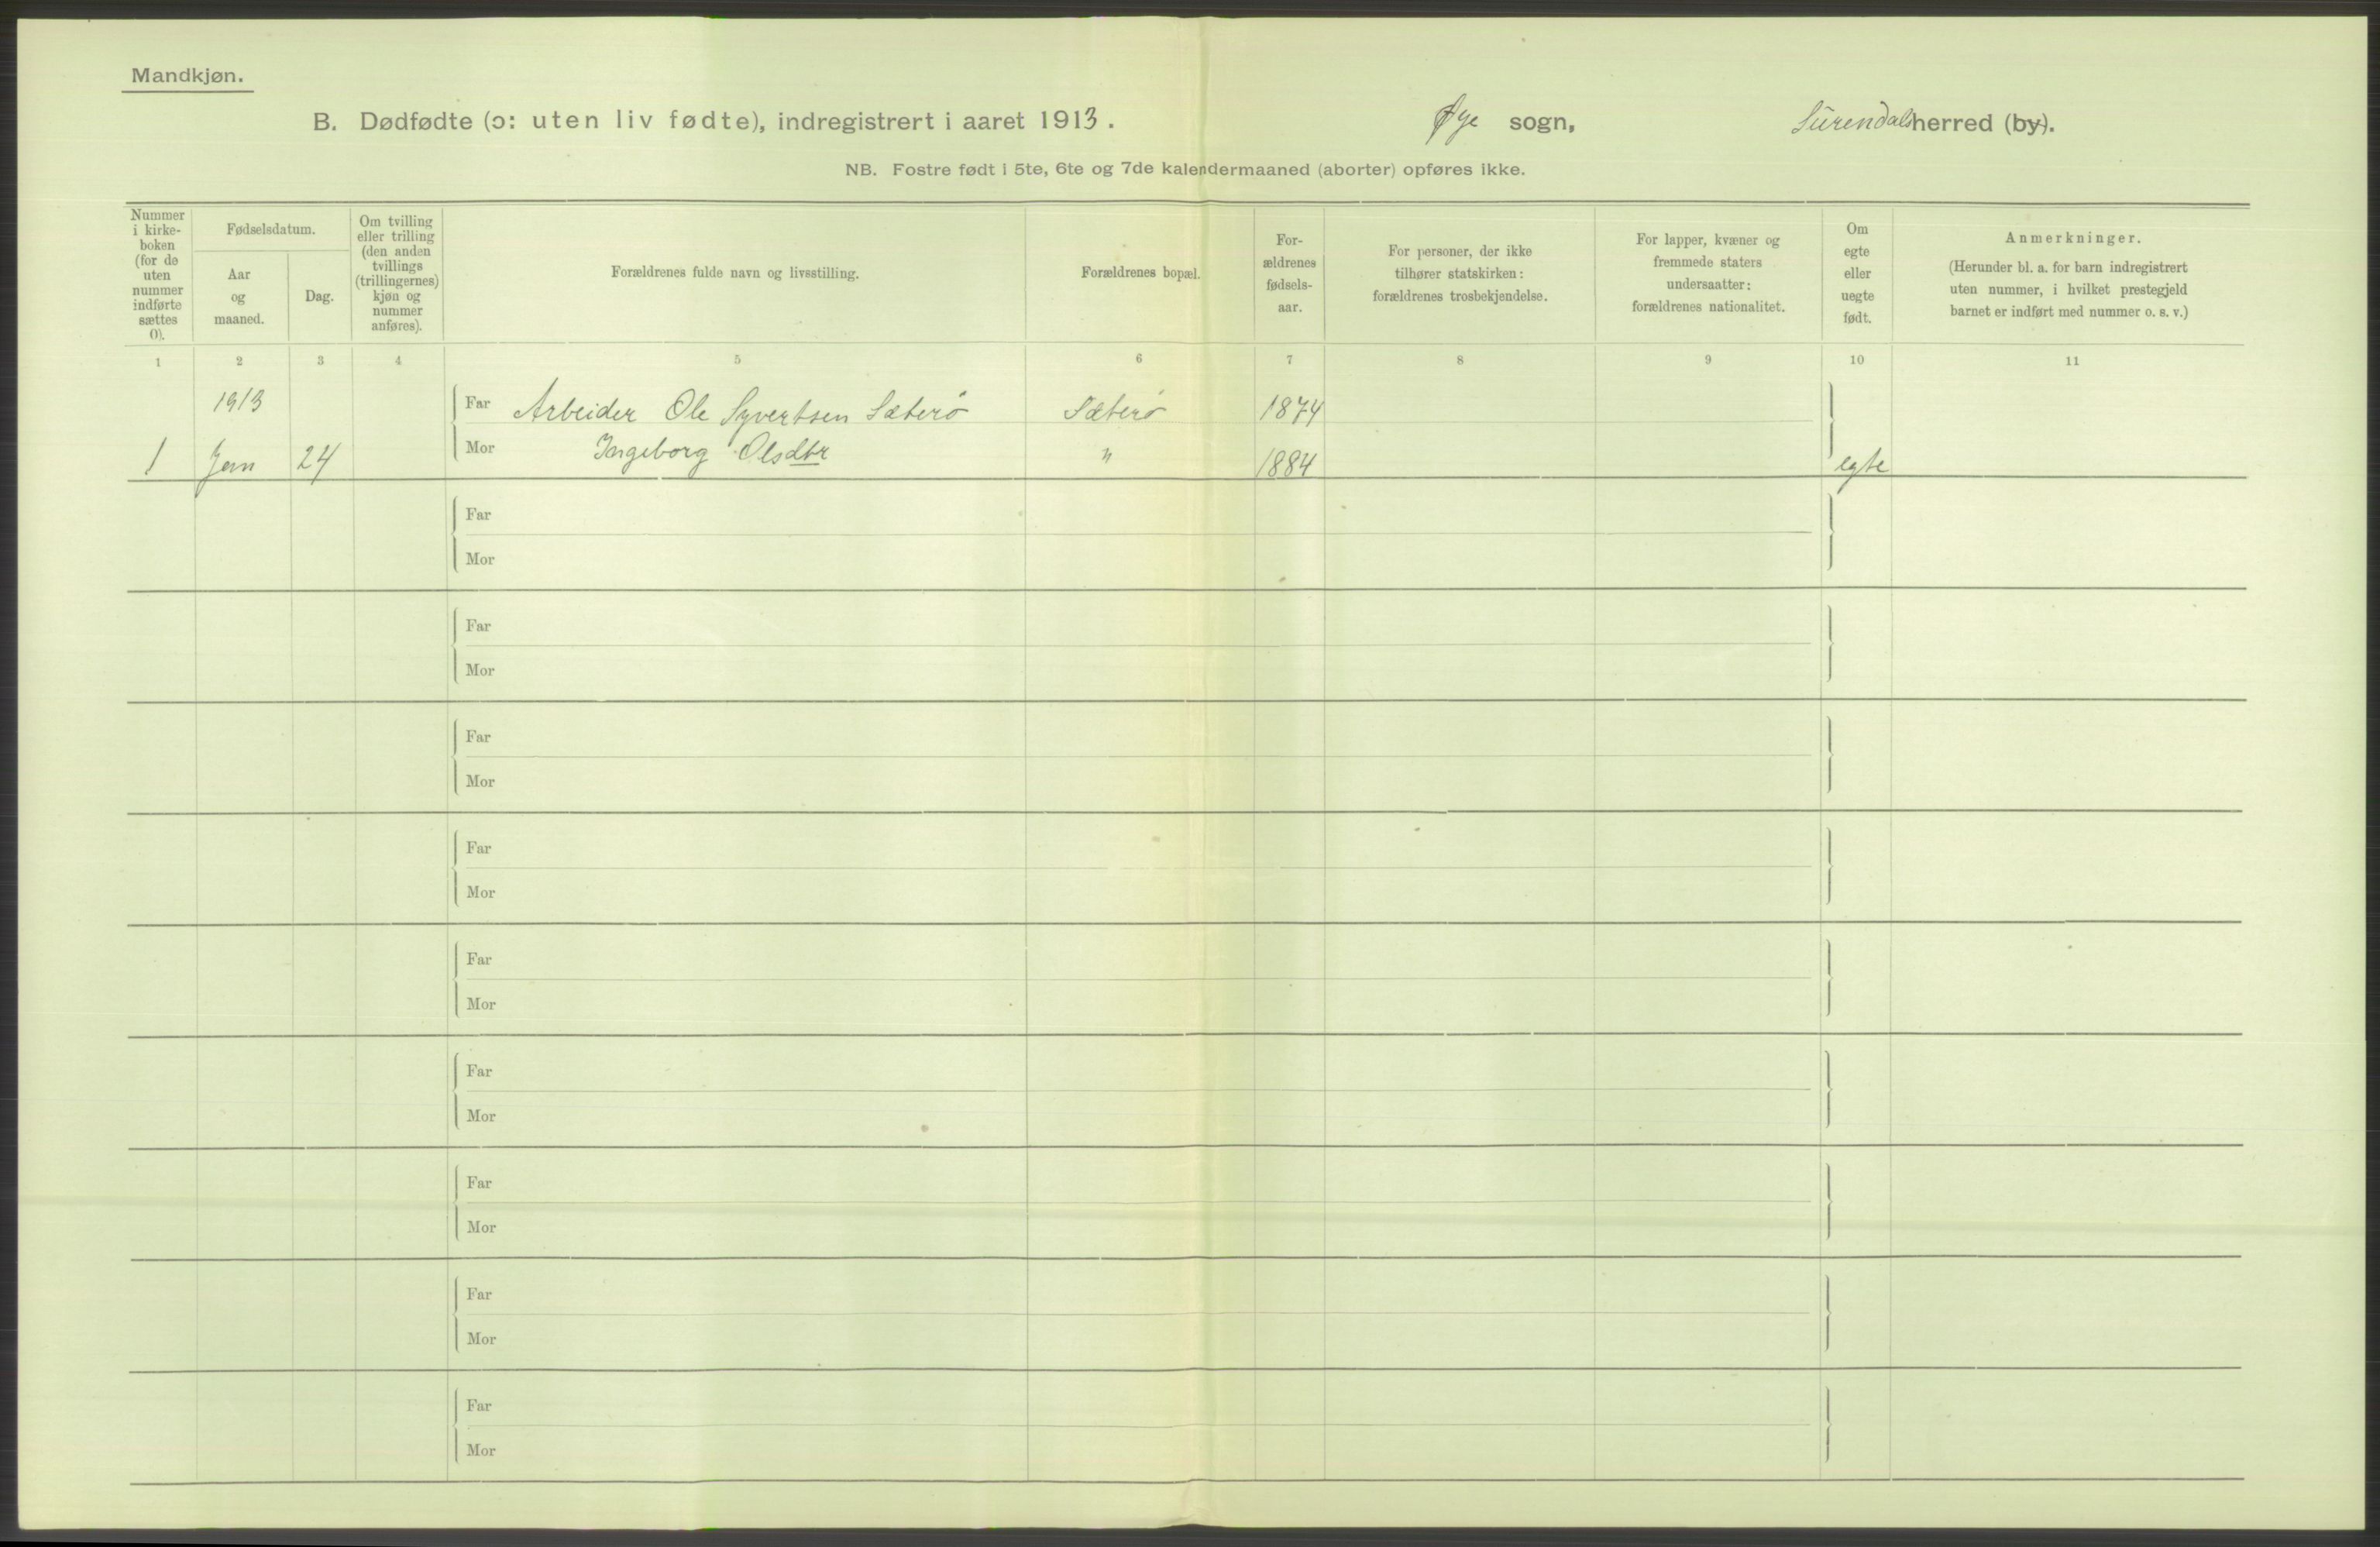 Mandkjøn.
B. Dødfødte (ɔ: uten liv fødte), indregistrert i aaret 1913. Øye sogn, Surendals herred (by).
NB. Fostre født i 5te, 6te og 7de kalendermaaned (aborter) opføres ikke.
Nummer
i kirke-
boken
(for de
uten
nummer
indførte
sættes
0).
Fødselsdatum.
Aar
og
maaned.
Dag.
Om tvilling
eller trilling
(den anden
tvillings
(trillingernes)
kjøn og
nummer
anføres).
Forældrenes fulde navn og livsstilling.
Forældrenes bopæl.
For-
ældrenes
fødsels-
aar.
For personer, der ikke
tilhører statskirken:
forældrenes trosbekjendelse.
For lapper, kvæner og
fremmede staters
undersaatter:
forældrenes nationalitet.
Om
egte
eller
uegte
født.
Anmerkninger.
(Herunder bl. a. for barn indregistrert
uten nummer, i hvilket prestegjeld
barnet er indført med nummer o. s. v.)
1 2 3 4 5 6 7 8 9 10 11
1913 Far Arbeider Ole Syvertsen Sæterö Sæterö 1874
1 Jan 24 Mor Ingeborg Olsdtr " 1884 egte
Far
Mor
Far
Mor
Far
Mor
Far
Mor
Far
Mor
Far
Mor
Far
Mor
Far
Mor
Far
Mor